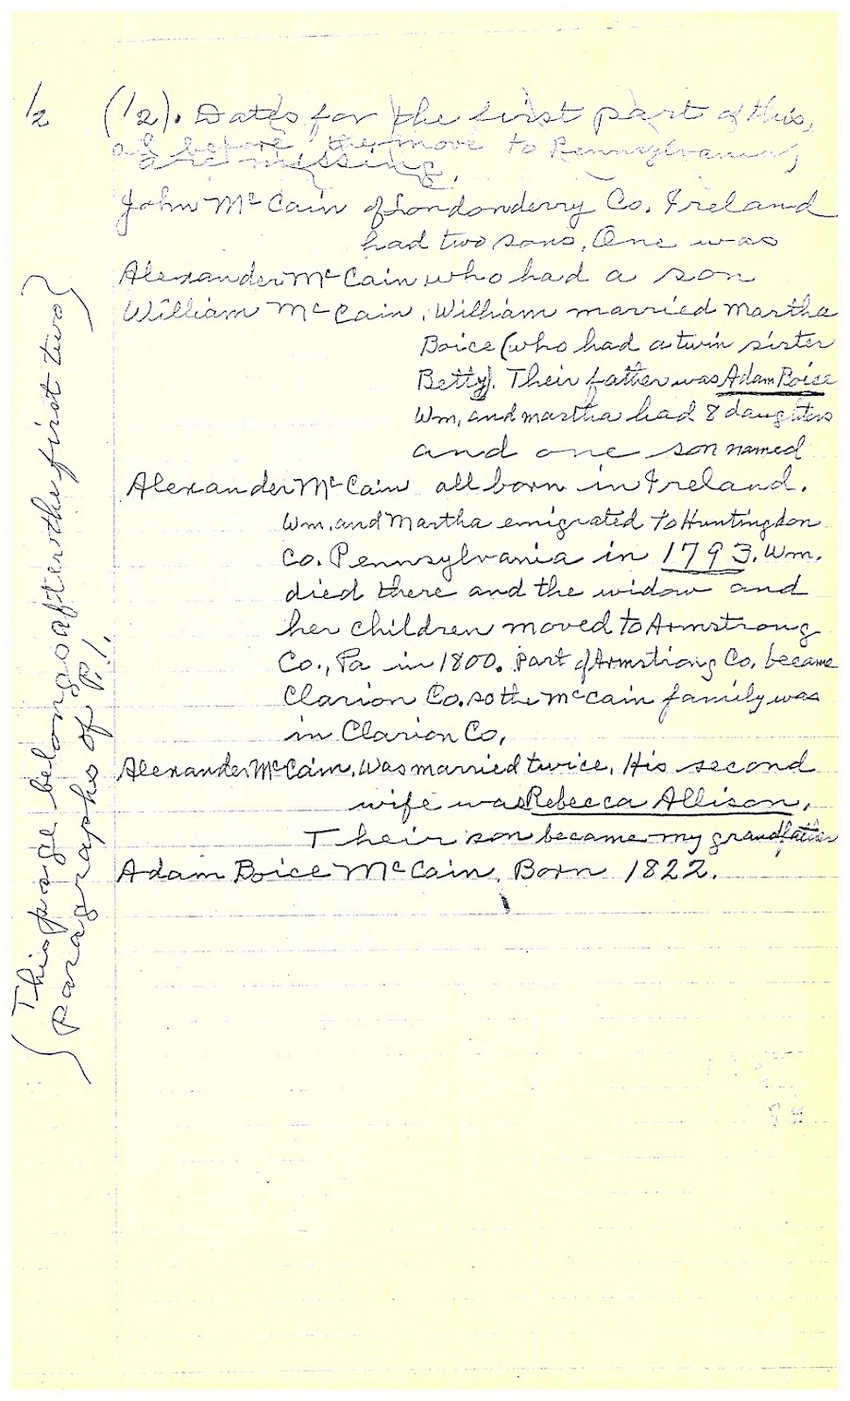 1/2
(1/2). Dates for the first part of this,
as before the move to Pennsylvania,
are missing.
John McCain of Londonderry Co. Ireland
had two sons, One was
Alexander McCain who had a son
William McCain. William married Martha
Boice (who had a twin sister
Betty). Their father was Adam Boice
Wm. and Martha had 8 daughters
and one son named
Alexander McCain all born in Ireland.
Wm. and Martha emigrated to Huntingdon
Co. Pennsylvania in 1793. Wm.
died there and the widow and
her children moved to Armstrong
Co., Pa in 1800. Part of Armstrong Co. became
Clarion Co. so the McCain family was
in Clarion Co.
Alexander McCain. Was married twice. His second
wife was Rebecca Allison.
Their son became my grandfather
Adam Boice McCain. Born 1822.
(This page belongs after the first two)
paragraphs of P. 1.